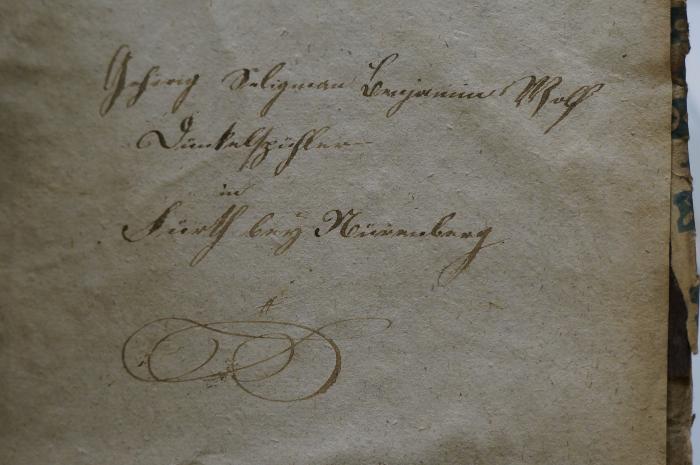 Gehörig Seligman Benjamin Wolf
Dünkelspühler
in
Fürth bey Nürenberg